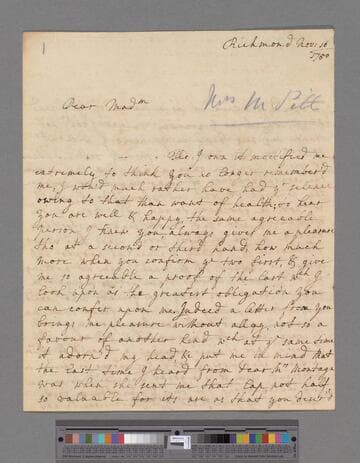 1
Richmond Nov: 16
1750
Dear Madm
Mrs M Pitt
Tho' I own it mortified me
extremely to think you no longer remember'd
me, I wou'd much rather have had yr silence
owing to that than want of health; to hear
you are well & happy, the same agreeable
person I knew you always gives me a pleasure
tho' at a second or third hand, how much
more when you confirm ye two first, & give
me so agreable a proof of the last wch I
look upon as the greatest obligation you
can confer upon me. Indeed a letter from you
brings me pleasure without allay, not so a
favour of another kind wch at ye same time
it adorn'd my head & put me in mind that
the last time I heard from Dear Mrs Montagu
was when she sent me that Cap not half
so valuable for its use as that you